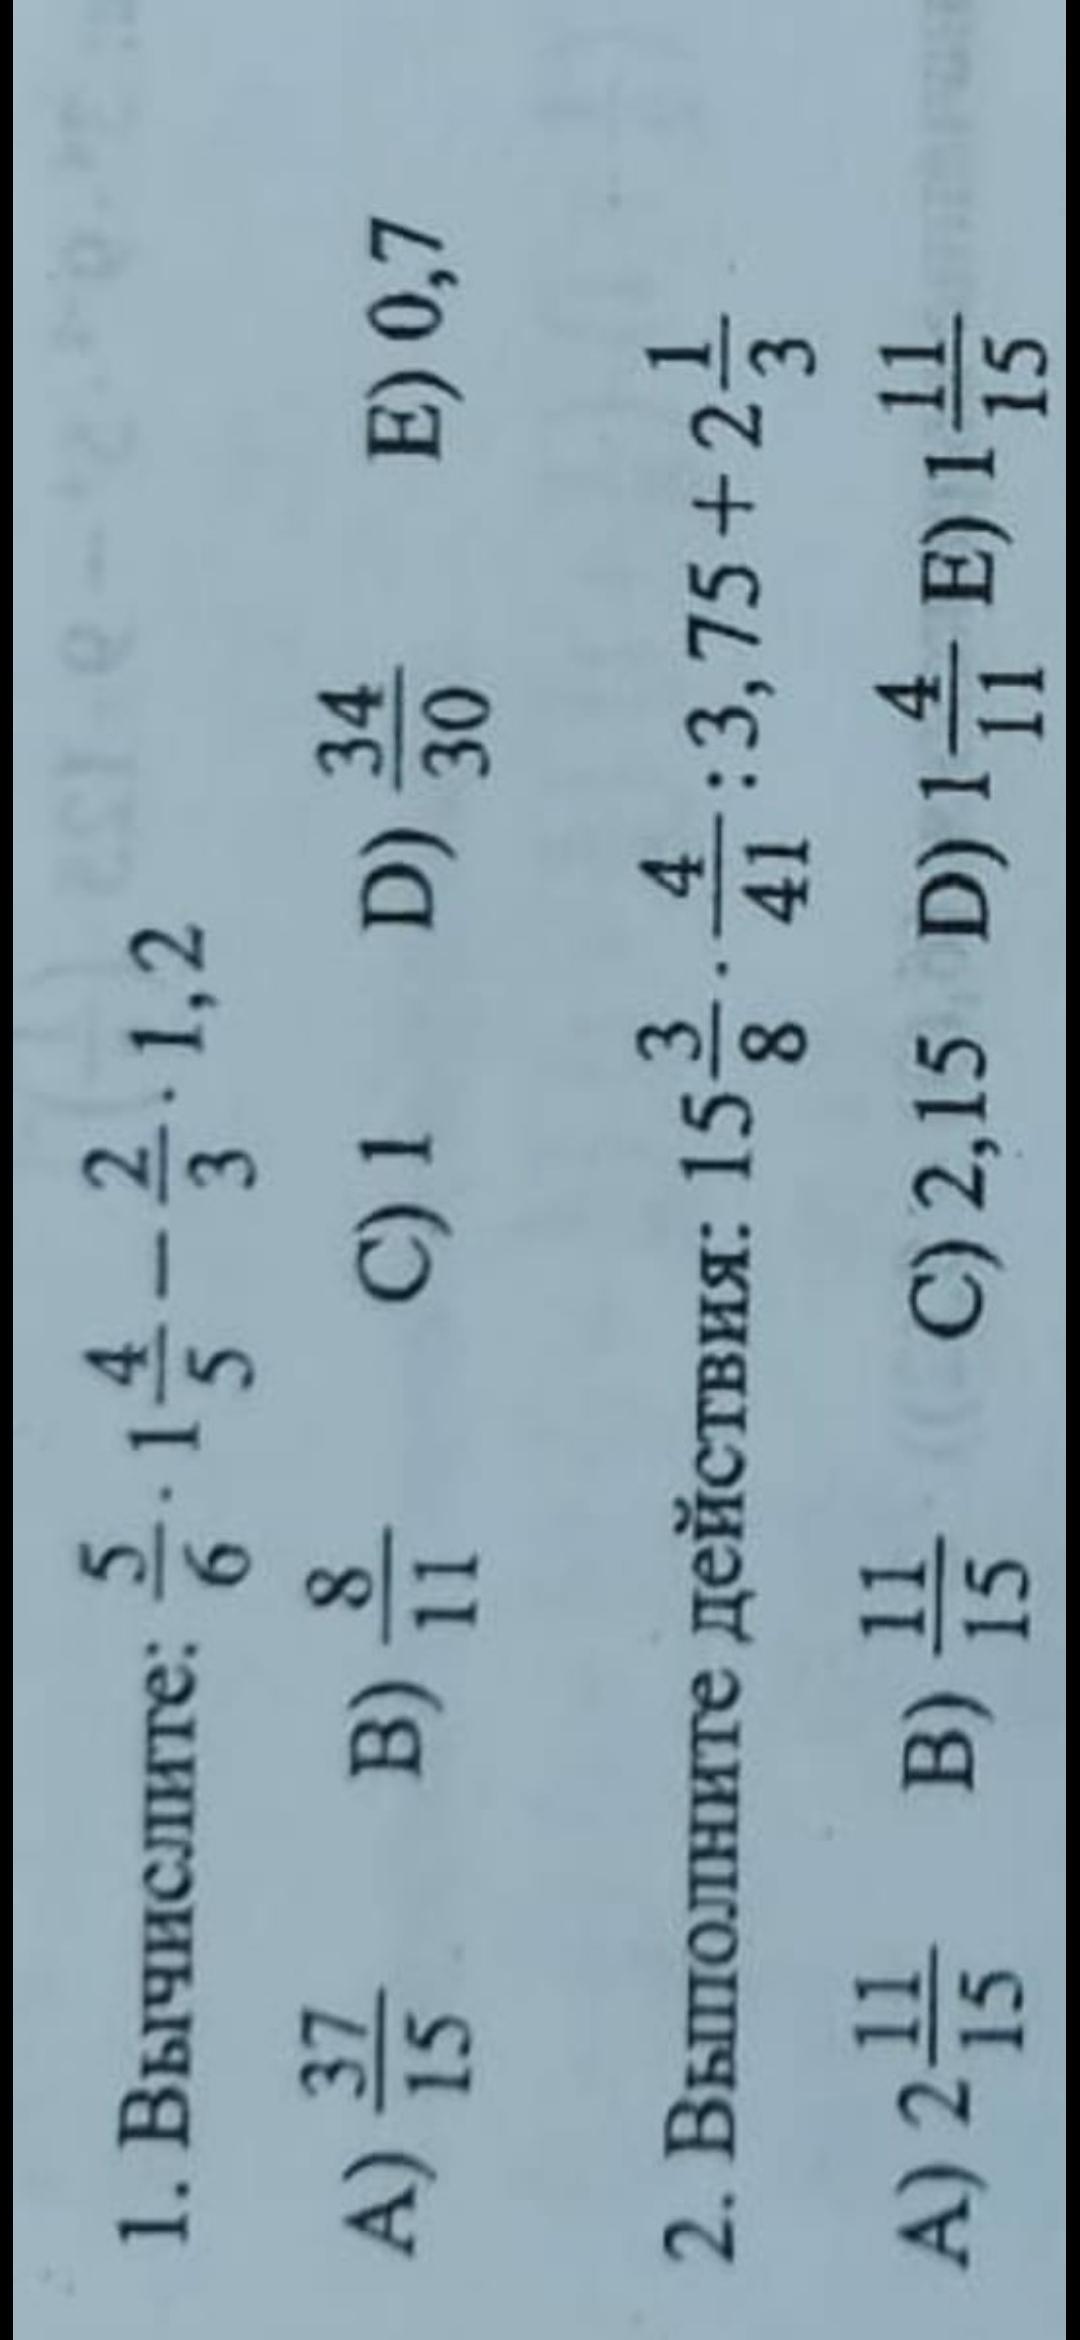 1. Вычислите: 5/6 · 1 4/5 − 2/3 · 1,2
A) 37/15 B) 8/11 C) 1 D) 34/30 E) 0,7
2. Выполните действия: 15 3/8 · 4/41 : 3,75 + 2 1/3
A) 2 11/15 B) 11/15 C) 2,15 D) 1 4/11 E) 1 11/15